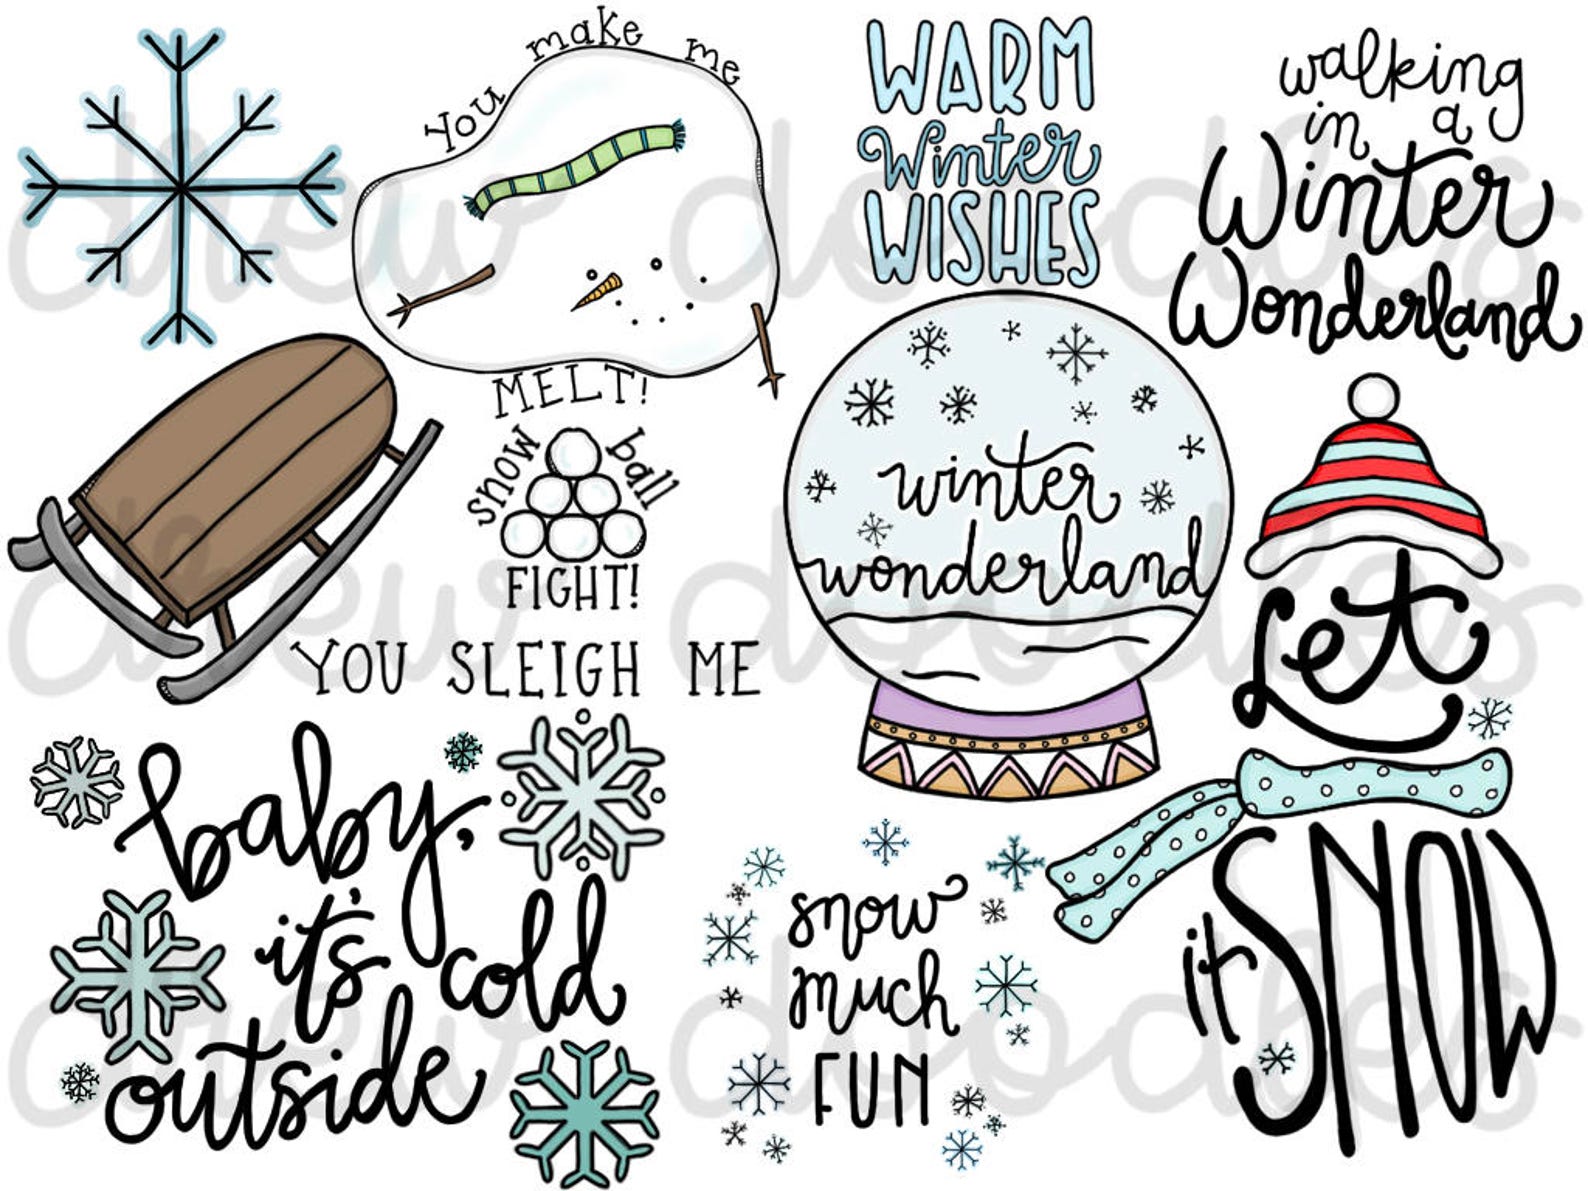 You make me
MELT!
WARM
Winter
WISHES
walking
in a
Winter
Wonderland
snow ball
FIGHT!
YOU SLEIGH ME
winter
wonderland
Let
it SNOW
baby,
it's cold
outside
snow
much
FUN
drew doodles
drew doodles
drew doodles